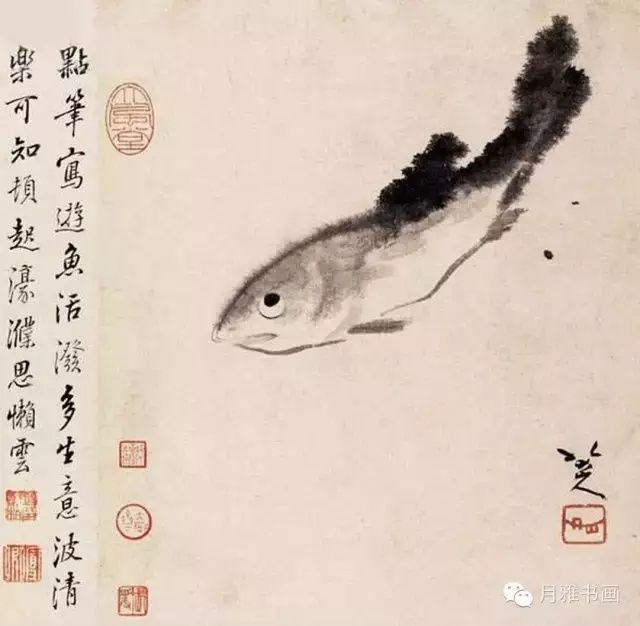 點筆寫遊魚活潑多生意波清
樂可知頓起濠濮思懶雲
月雅书画